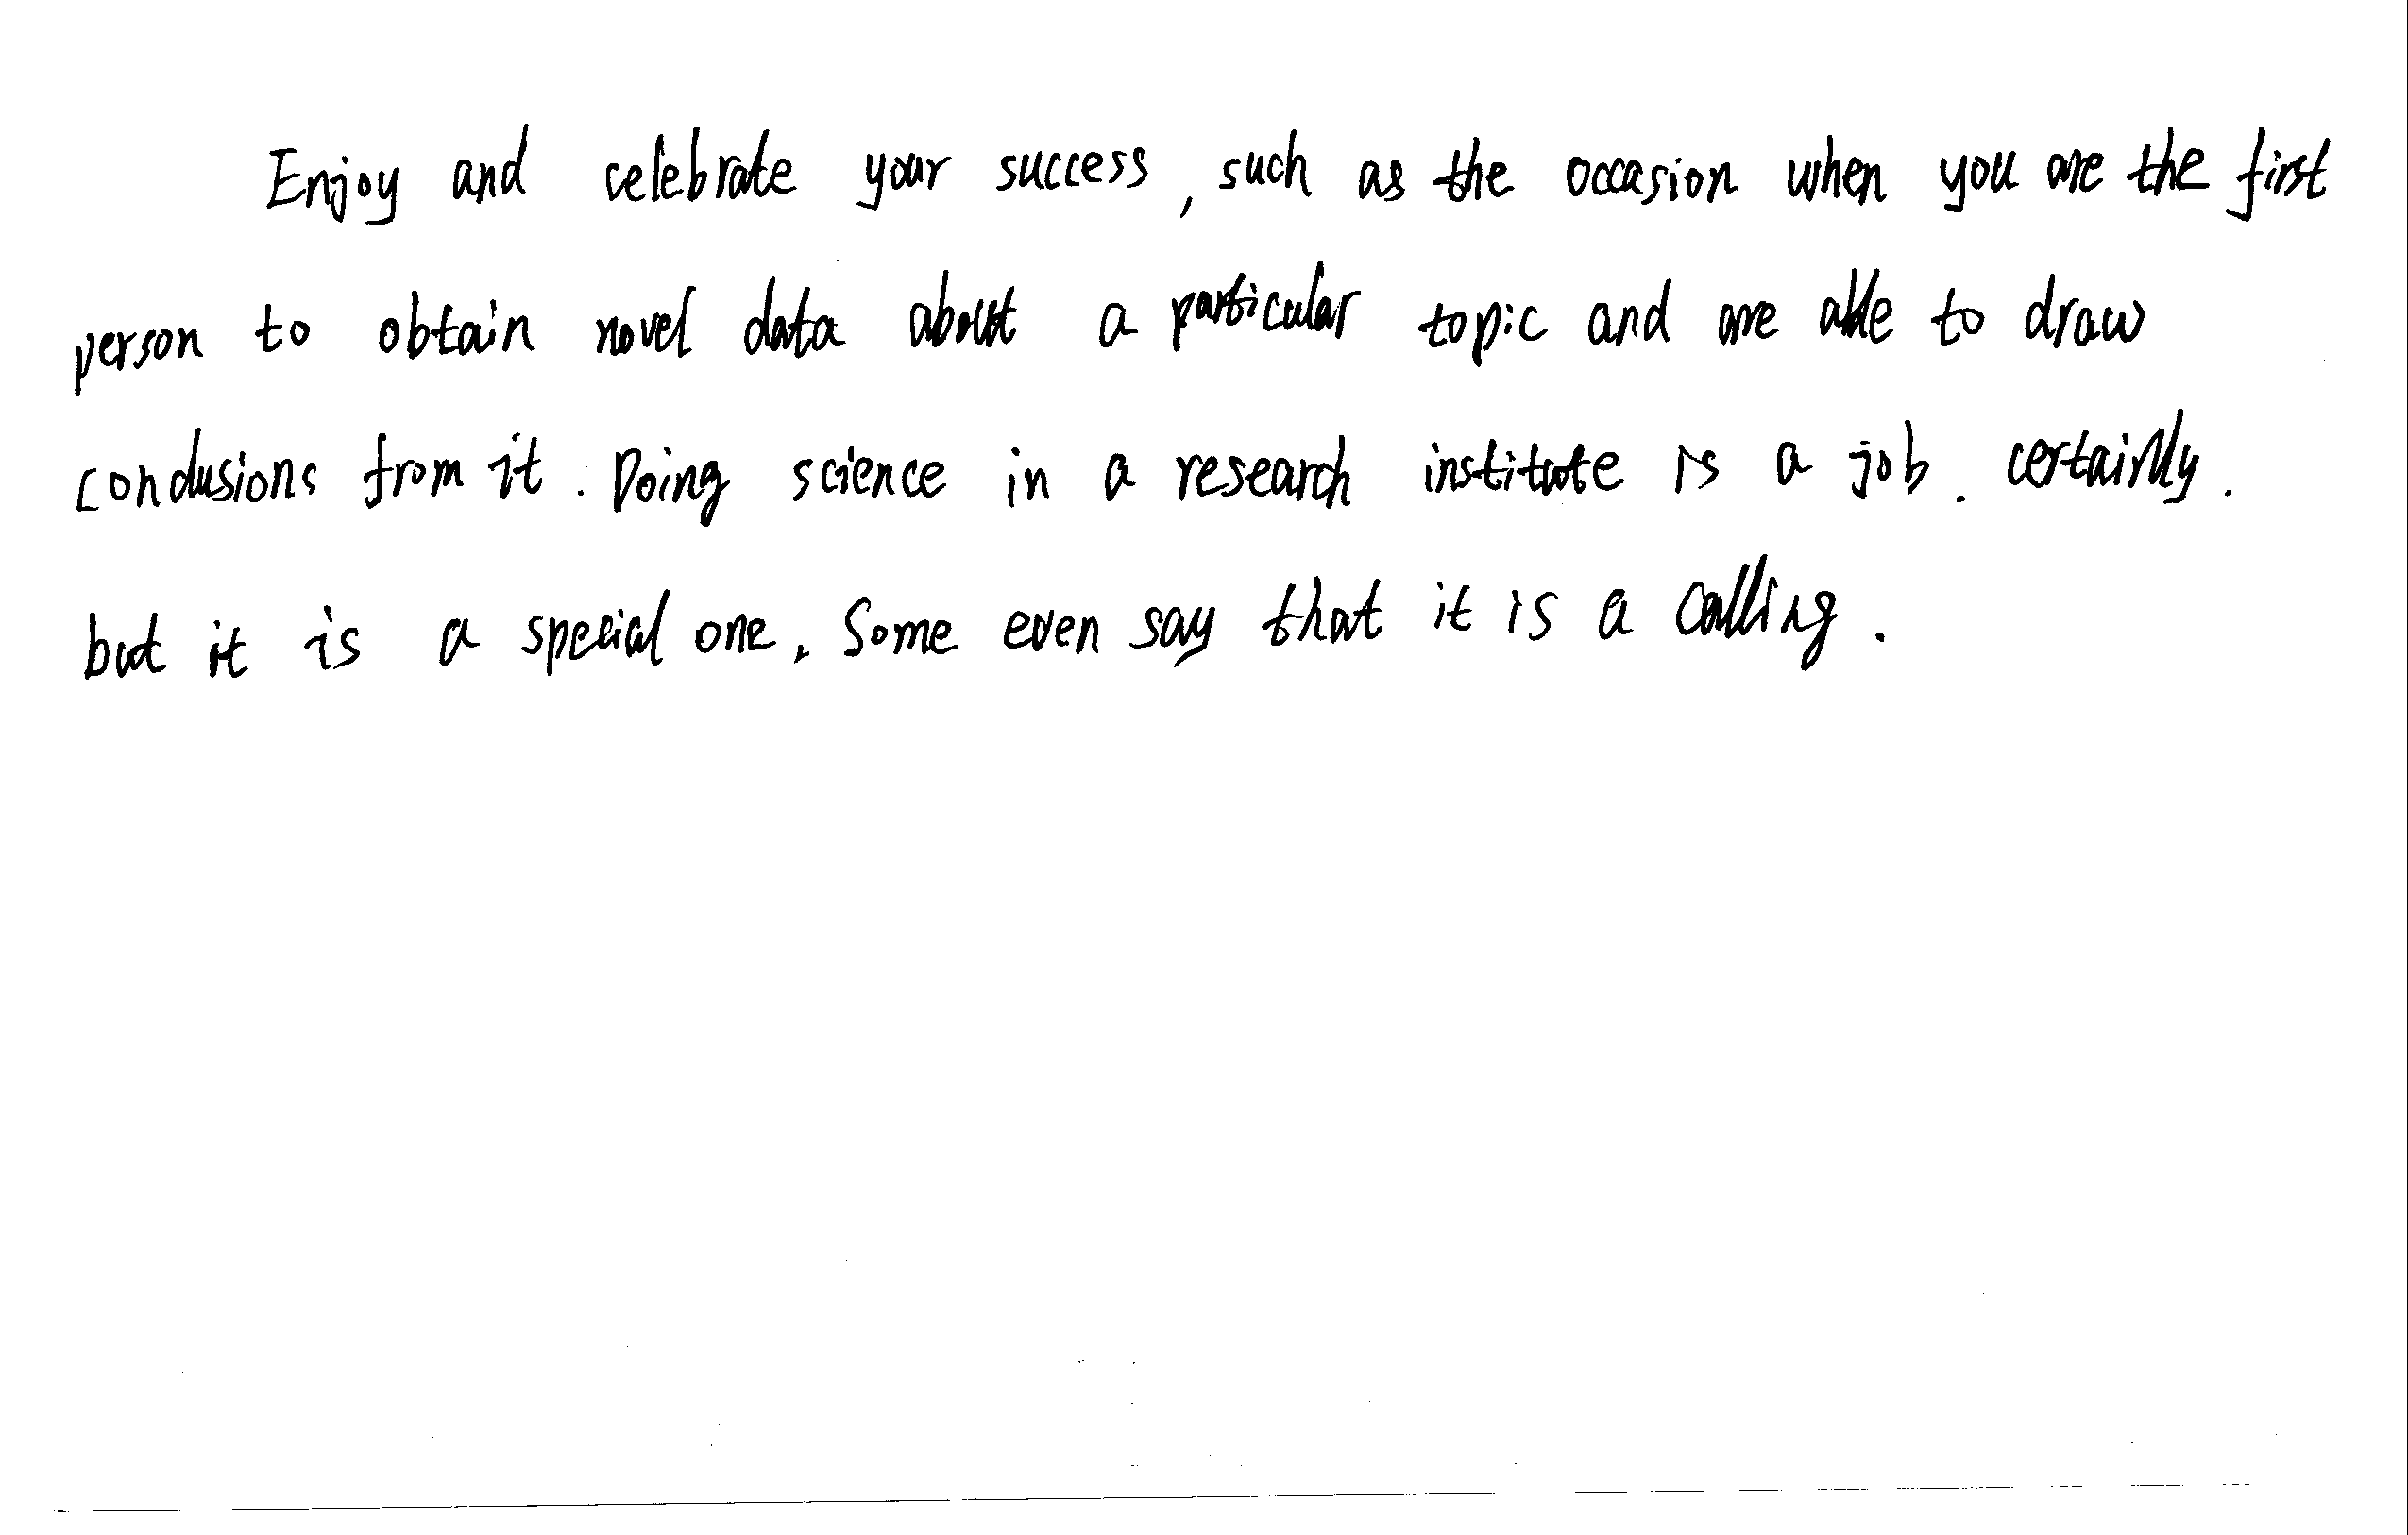 Enjoy and celebrate your success, such as the occasion when you are the first
person to obtain novel data about a particular topic and are able to draw
conclusions from it. Doing science in a research institute is a job. certainly.
but it is a special one. Some even say that it is a calling.